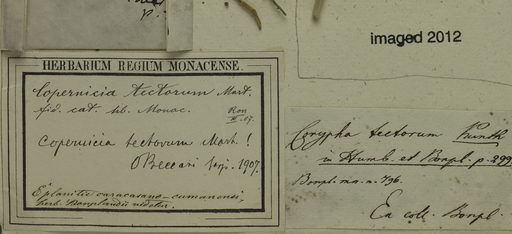 p.
imaged 2012
HERBARIUM REGIUM MONACENSE.
Copernicia tectorum Mart.
fid. cat. hb. Monac.
Copernicia tectorum Mart. !
O Beccari 1907.
E planitie caracasano-cumanensi,
herb. Bonplandii
Corypha tectorum Kunth
in Humb. et Bonpl. p. 299
Bonpl. ms. n. 796.
Ex coll. Bonpl.